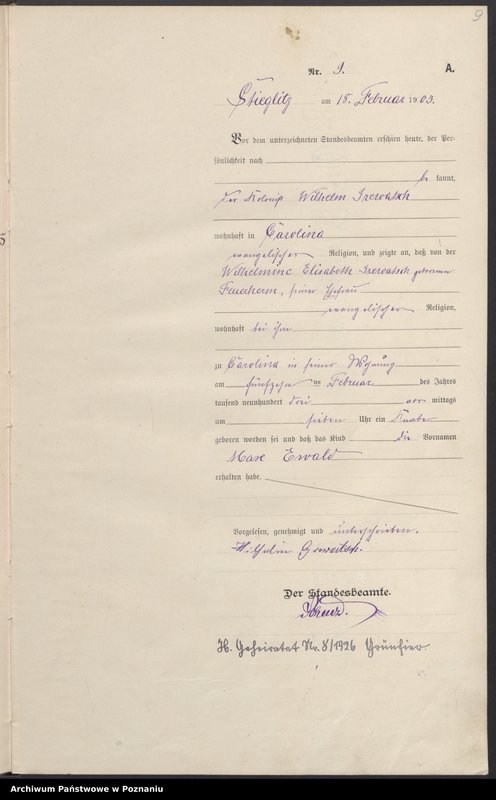 9
Nr. 9.
A.
Stieglitz am 18. Februar 1903.
Vor dem unterzeichneten Standesbeamten erschien heute, der Per-
sönlichkeit nach
be kannt,
der Kolonist Wilhelm Grewatsch
wohnhaft in Carolina
evangelischer Religion, und zeigte an, daß von der
Wilhelmine Elisabeth Grewatsch geborenen
Feuerherm, seiner Ehefrau
evangelischer Religion,
wohnhaft bei ihm
zu Carolina in seiner Wohnung
am fünfzehn ten Februar des Jahres
tausend neunhundert drei vor mittags
um sieben Uhr ein Knabe
geboren worden sei und daß das Kind die Vornamen
Max Ewald
erhalten habe.
Vorgelesen, genehmigt und unterschrieben.
Wilhelm Grewatsch.
Der Standesbeamte.
H. Geheiratet Nr. 8/1926 Grünfier
Archiwum Państwowe w Poznaniu